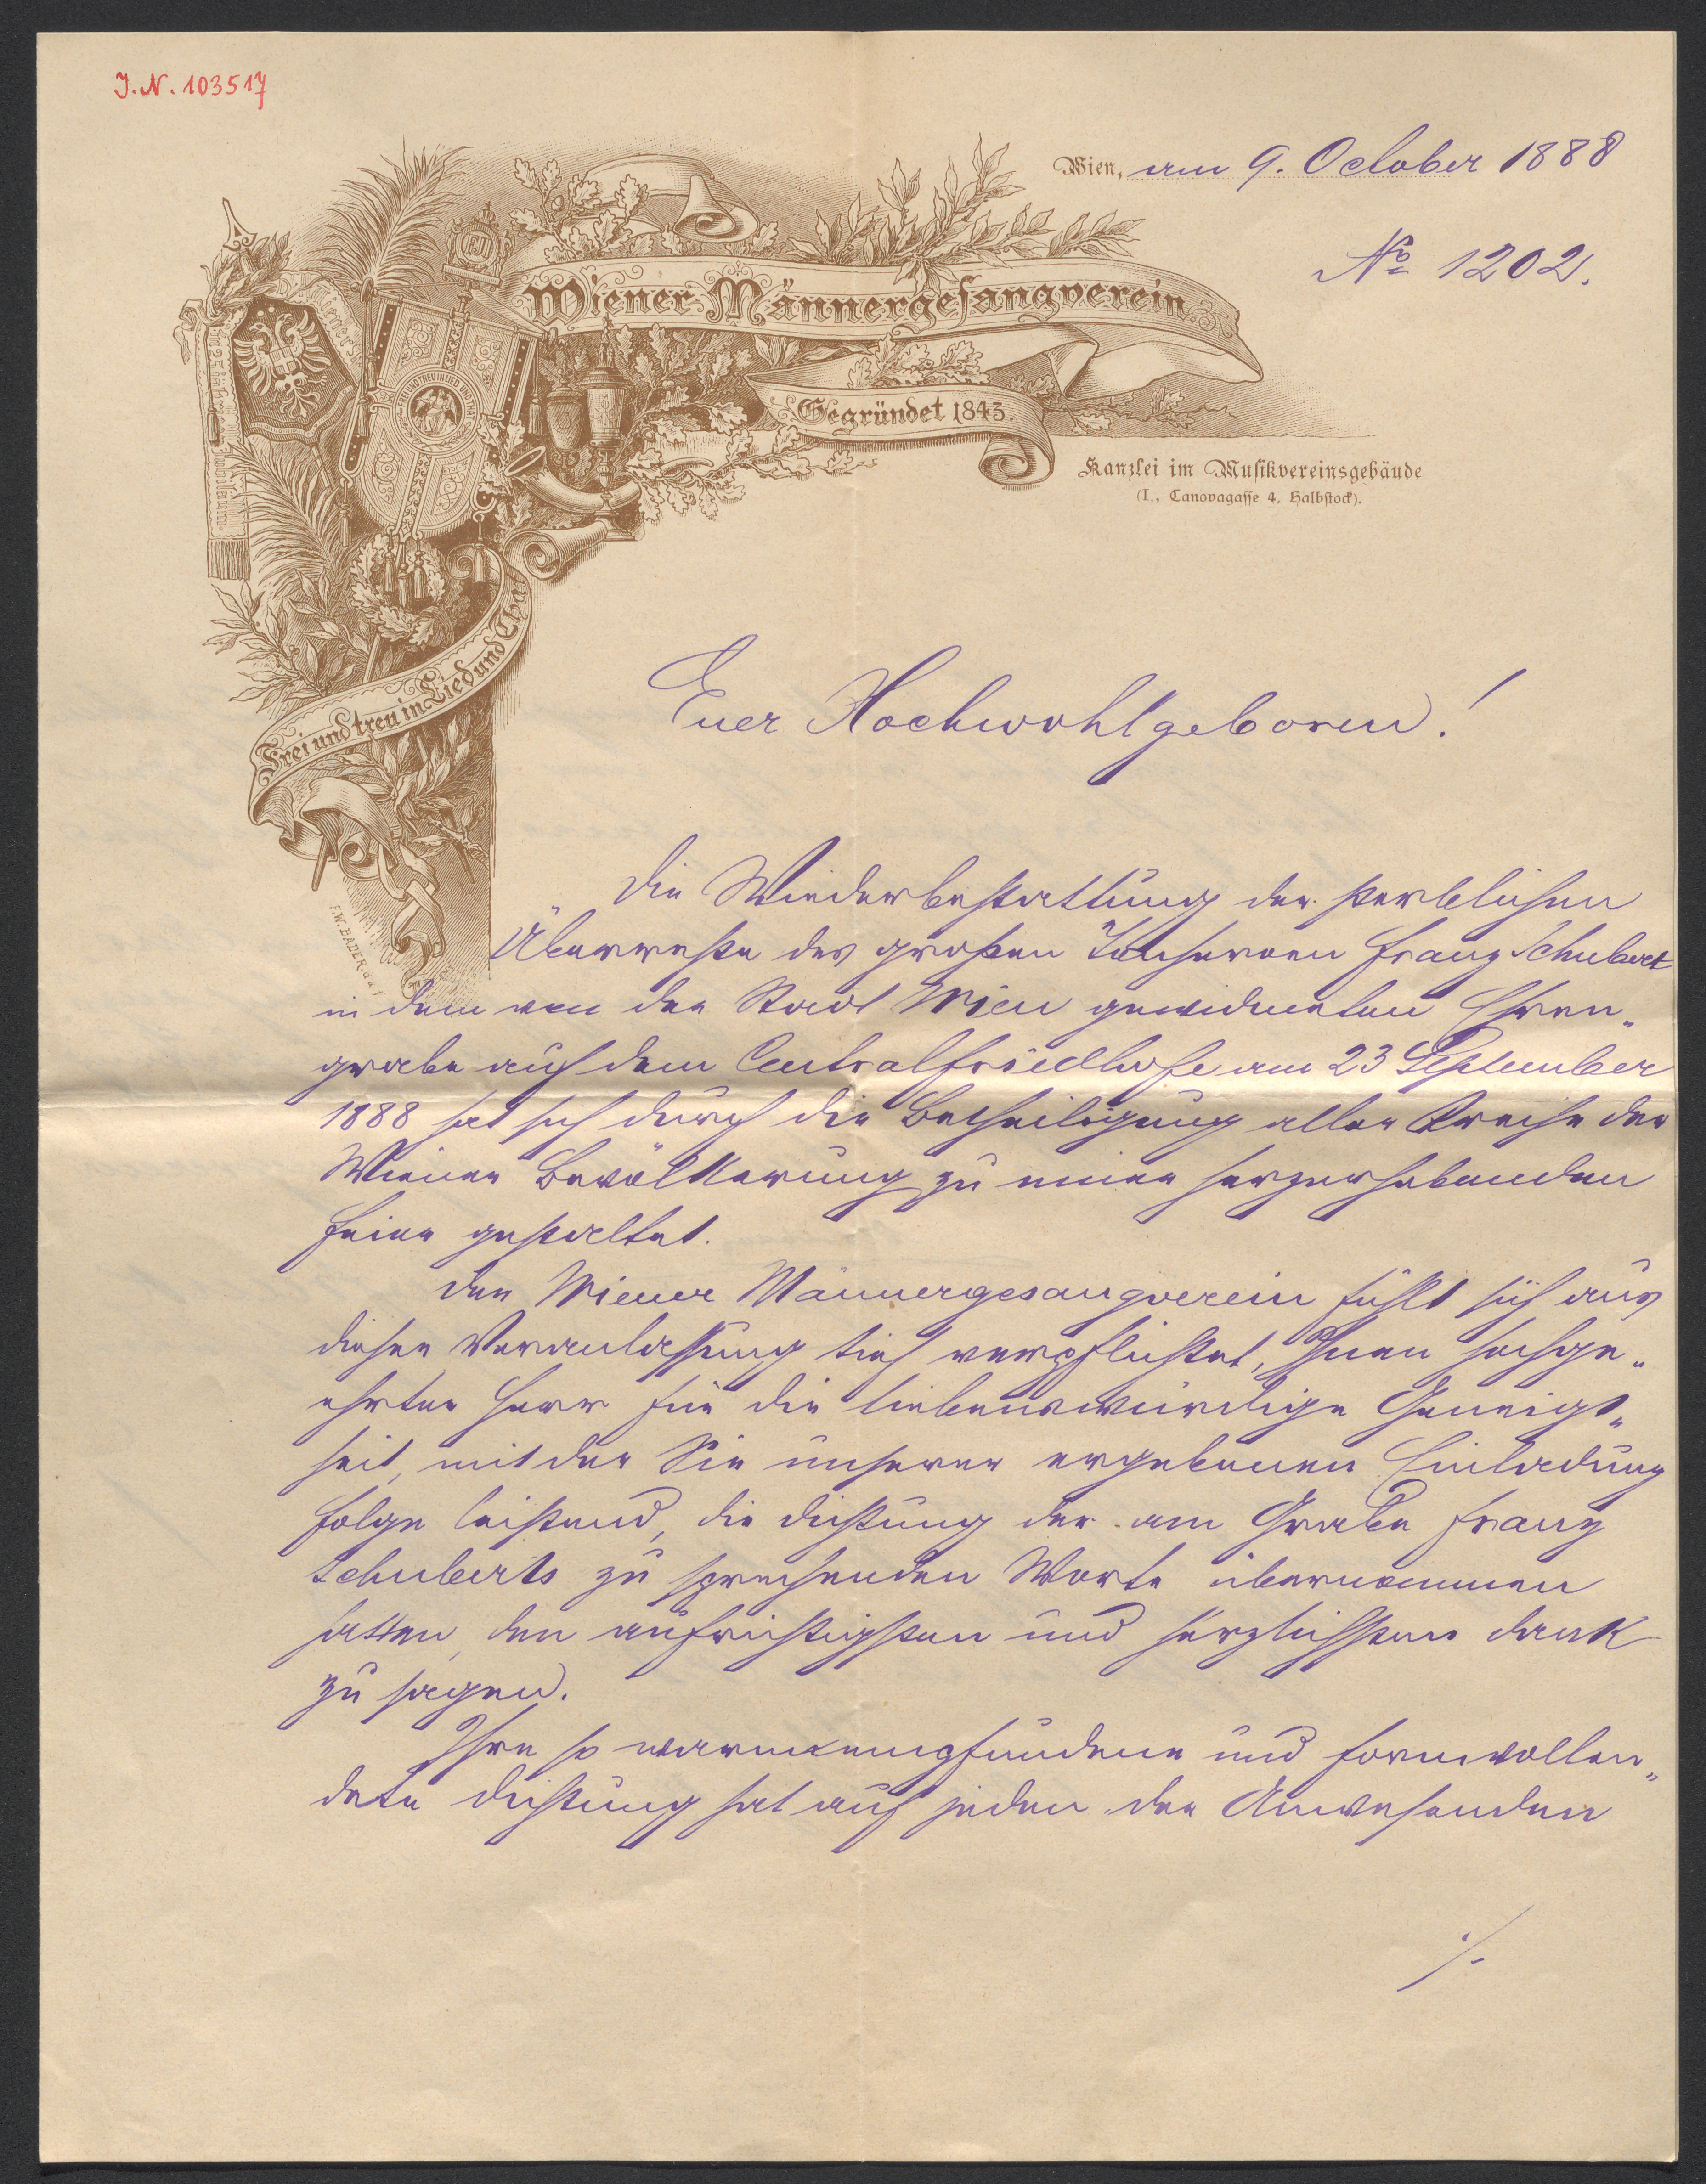 J.N. 103517
Wien, am 9. October 1888
No 1202.
Wiener Männergesangverein.
Gegründet 1843.
Kanzlei im Musikvereinsgebäude
(I., Canovagasse 4, Halbstock).
Frei und treu in Lied und That
F.W. BADER
Euer Hochwohlgeboren!
Die Wiederbestattung der sterblichen
Überreste des großen Tonheroen Franz Schubert
in dem von der Stadt Wien gewidmeten Ehren„
grabe auf dem Centralfriedhofe am 23 September
1888 hat sich durch die Betheiligung aller Kreise der
Wiener Bevölkerung zu einer herzerhebenden
Feier gestaltet.
Der Wiener Männergesangverein fühlt sich aus
dieser Veranlassung tief verpflichtet, Ihnen hochge„
ehrter Herr für die liebenswürdige Geneigt„
heit, mit der Sie unserer ergebenen Einladung
Folge leistend, die Dichtung der am Grabe Franz
Schuberts zu sprechenden Worte übernommen
hatten, den aufrichtigsten und herzlichsten Dank
zu sagen.
Ihre so warmempfundene und formvollen„
dete Dichtung hat auf jeden der Anwesenden
./.